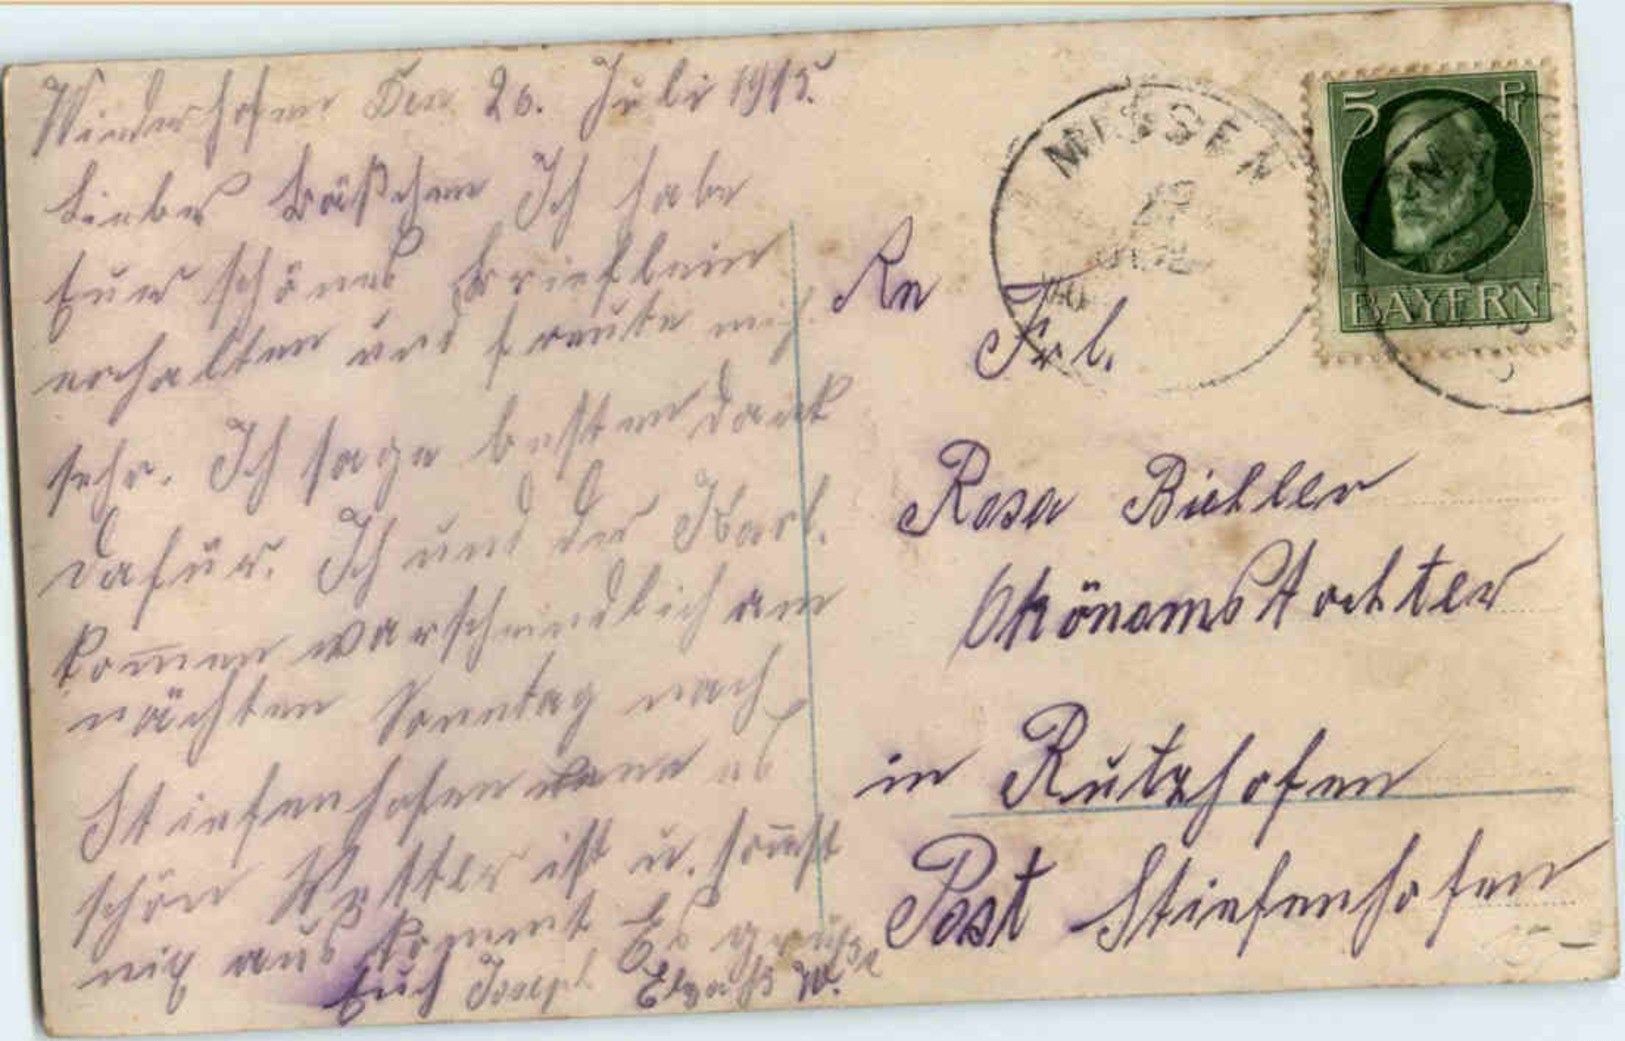 Wiederhofen Den 26. Juli 1915.
Liebes Bäßchen Ich habe
Euer schönes Brieflein
erhalten und freute mich
sehr. Ich sage besten Dank
dafür. Ich und der Karl.
kommen warscheindlich am
nächten Sonntag nach
Stiefenhofen wenn es
schön Wetter ist u. sonst
nix aus kommt Es grüßt
Euch Joseph W.
MISSEN
5 Pf
BAYERN
An
Frl.
Rosa Biehler
Okönomstochter
in Rutzhofen
Post Stiefenhofen